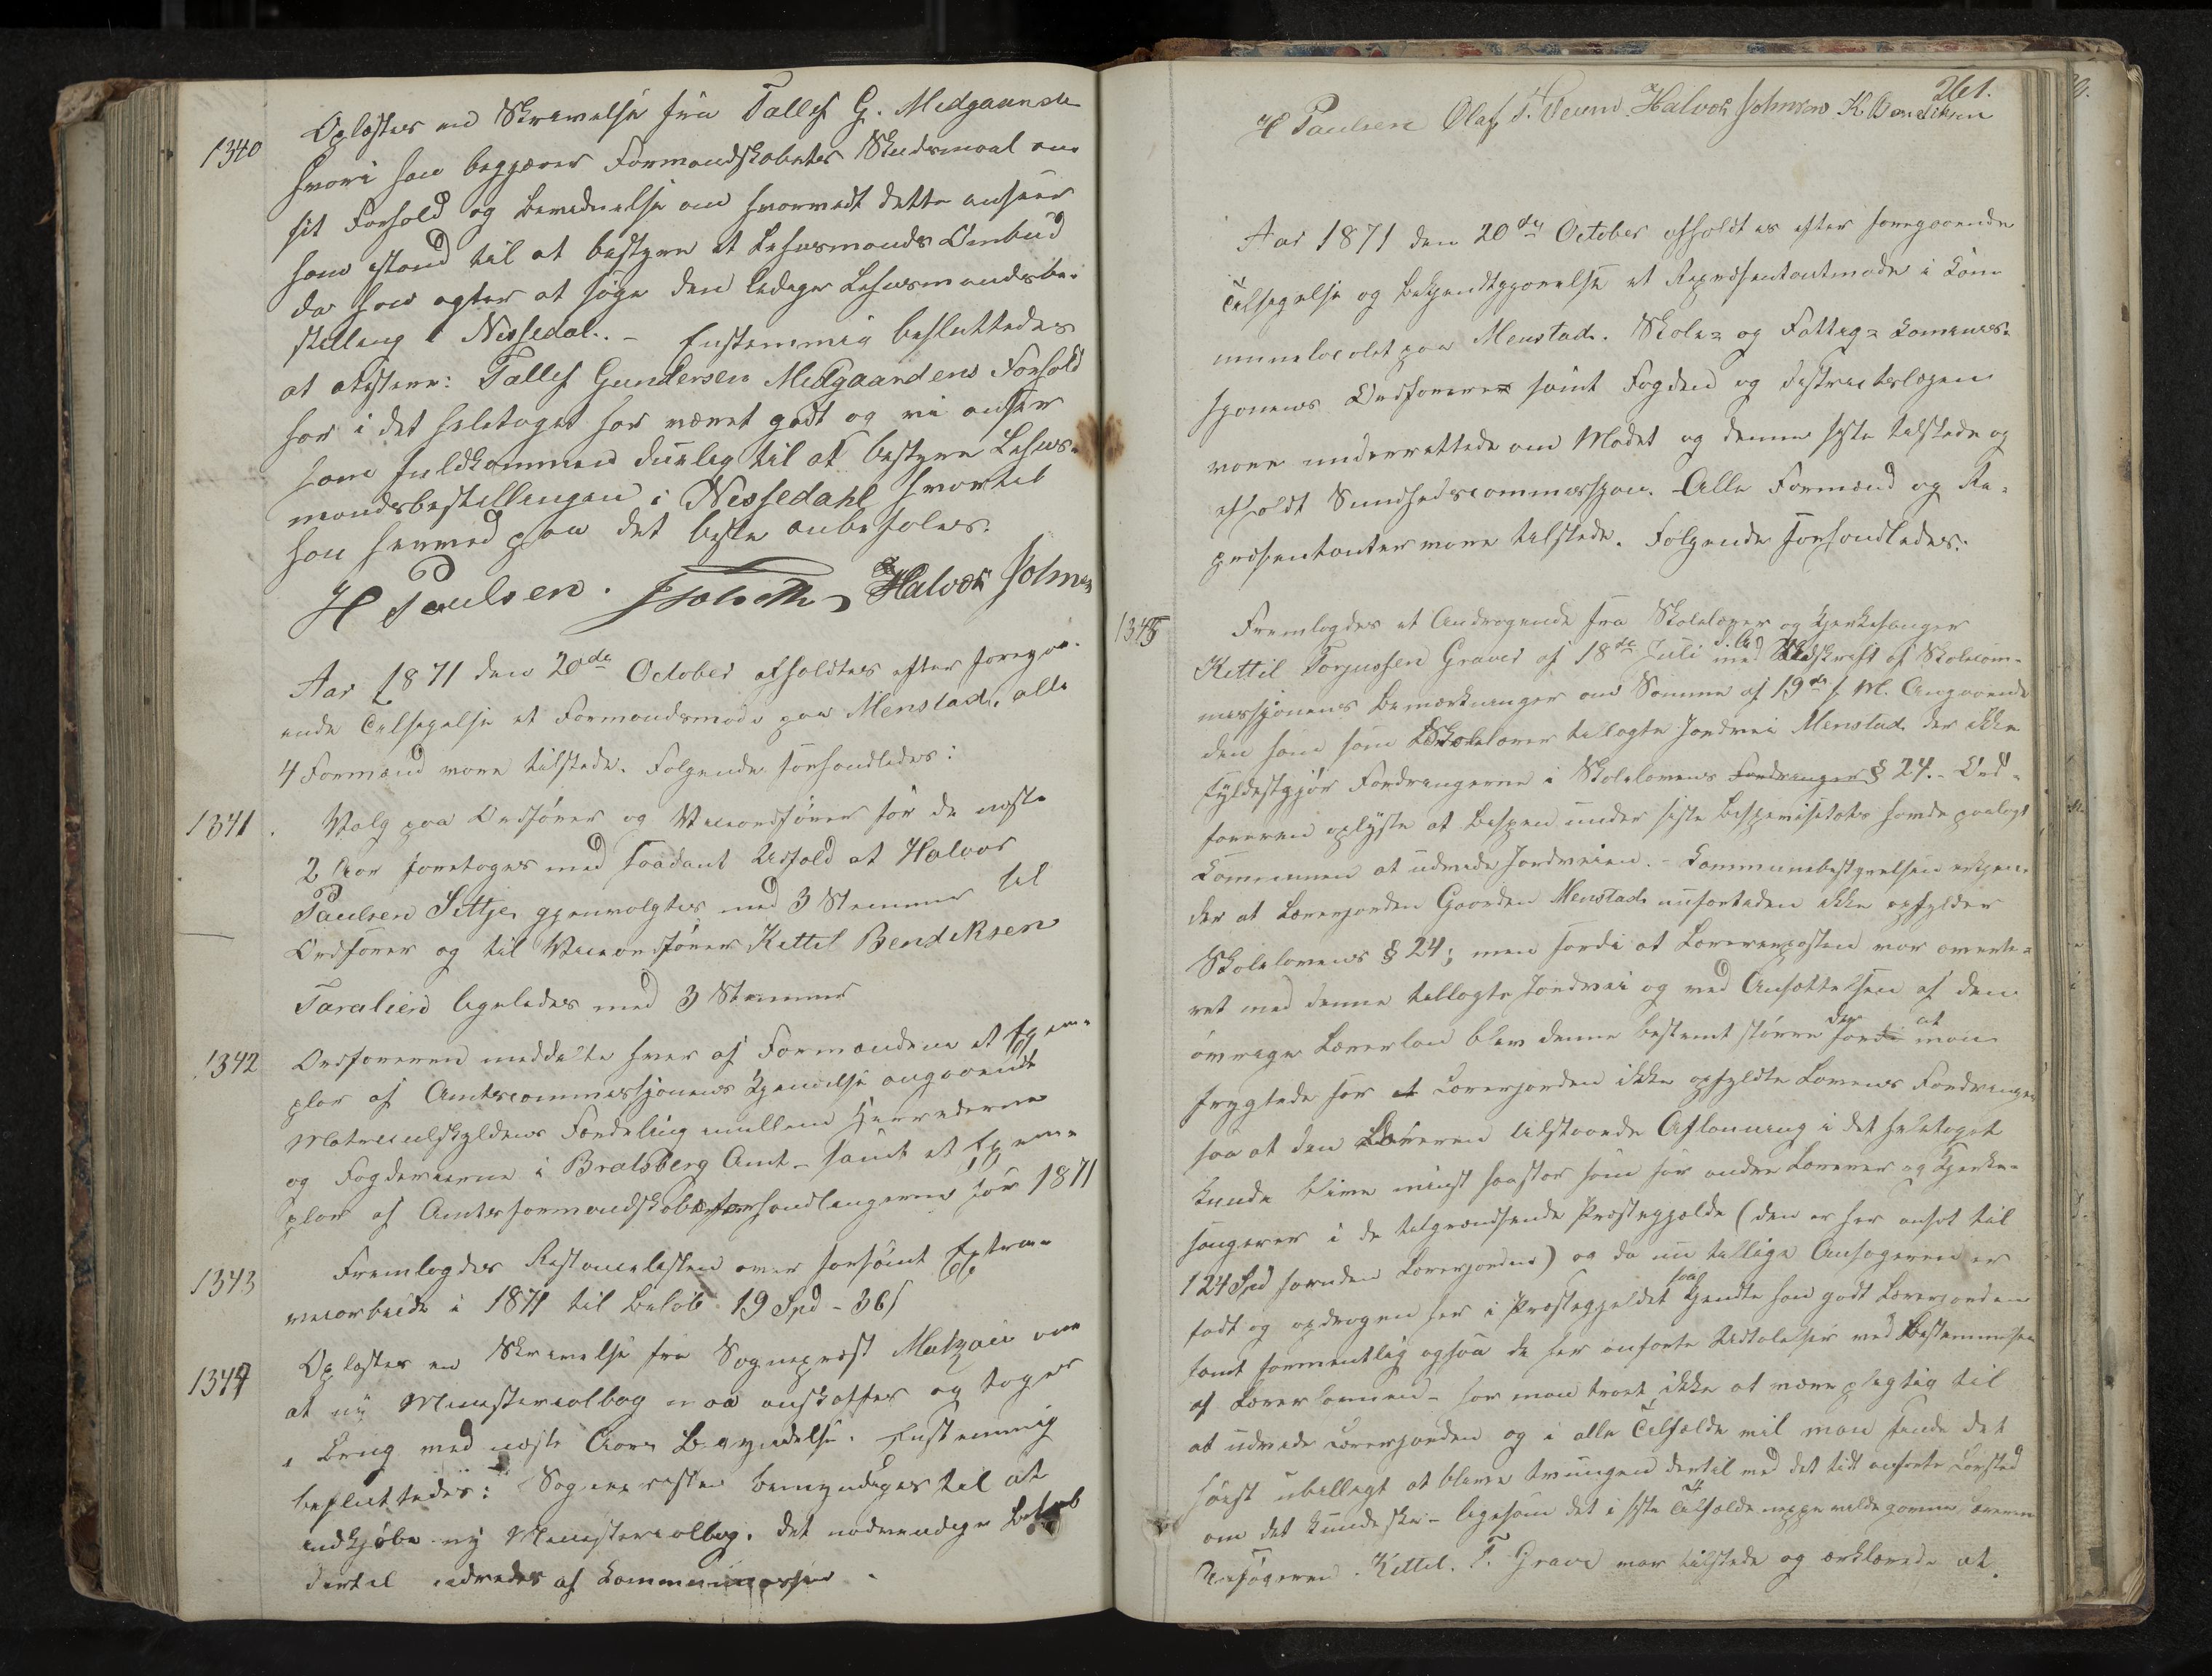 1340 Oplæstes en Skrivelse fra Tallef G. Midgaarden
hvori han begjærer Formandskabets Skudsmaal om
sit Forhold og Bevidnelse om hvorvidt dette anseer
ham istand til at bestyre et Lehnsmands Ombud
da han agter at søge den ledige Lehnsmandsbe-
stilling i Nissedal. - Enstemmig besluttedes
at atistere: Tallef Gundersen Midgaardens Forhold
har i det heletaget har været godt og vi anser
ham fuldkommen duelig til at bestyre Lehns-
mandsbestillingen i Nissedahl hvortil
han hermed paa det beste anbefales.
H Paulsen. Halvor Johnsen
Aar 1871 den 20de October afholdtes efter foregaa-
ende Tilsigelse et Formandsmøde paa Menstad, alle
4 Formænd vare tilstede. Følgende forhandledes:
1341. Valg paa Ordfører og Viceordfører for de neste
2 Aar foretoges med saadant Udfald at Halvor
Paulsen Tittje gjenvalgtes med 3 Stemmer til
Ordfører og til Viceordfører Kittil Bendiksen
Taralien ligeledes med 3 Stemmer
1342 Ordføreren meddelte hver af Formændene et Exem-
plar af Amtscommissjonens Kjendelse angaaende
Matriculskyldens Fordeling mellem Herrederne
og Fogderierne i Bratsberg Amt - samt et Exem-
plar af Amtsformandskabsforhandlingerne for 1871
1343 Fremlagdes Restancelisten over forsømt Extra-
veiarbeide i 1871 til Beløb 19 Spd - 36 s
1344 Oplæstes en Skrivelse fra Sogneprest Matzau om
at ny Ministerialbog maa anskaffes og tages
i Brug med neste Aars Begyndelse. Enstemmig
besluttedes: Sognepresten bemyndiges til at
indkjøbe ny Ministerialbog. Det nødvendige Beløb
dertil udredes af Kommunecassen.
261.
H Paulsen Olaf T. Halvor Johnsen K Bendiksen
Aar 1871 den 20de October afholdtes efter foregaaende
Tilsigelse og Bekjendtgjørelse et Repræsentantmøde i Kom-
munelocalet paa Menstad. Skole- og Fattig- Kommis-
sjonens Ordførere samt Fogden og Distriktslægen
vare underrettede om Mødet og denne siste tilstede og
afholdt Sundhedscommissjon. Alle Formænd og Re-
præsentanter vare tilstede. Følgende forhandledes:
1345 Fremlagdes et Andragende fra Skolelærer og Kjerkesanger
Kittil Torjussen Graver af 18de Juli d. A. med Paaskrift af Skolecom-
missjonens Bemærkninger om Samme af 19de s. M. Angaaende
den ham som Skolelærer tillagte Jordvei Menstad der ikke
fyldestgjør Fordringerne i Skolelovens Fordringer § 24. - Ord-
føreren oplyste at Bispen under siste Bispevisitats havde paalagt
Kommunen at udvide Jordveien. - Kommunebestyrelsen erkjen-
der at Lærerjorden Gaarden Menstad ikke opfylder
Skolelovens § 24; men fordi at Lærerposten var averte-
ret med denne tillagte Jordvei og ved Ansættelsen af den
øvrige Lærerløn blev denne bestemt større der fordi at man
frygtede for at Lærerjorden ikke opfyldte Lovens Fordringer
saa at den Læreren tilstaaede Aflønning i det heletaget
kunde blive minst saastor som for andre Lærere og Kjerke-
sangere i de tilgrændsende Præstegjælde (den er her ansat til
124 Spd foruden Lærerjorden) og da nu tillige Ansøgeren er
født og opdragen her i Præstegjeldet saa kjendte han godt Lærerjorden
samt formentlig ogsaa de her anførte Udtalelser ved Bestemmelsen
af Lærerlønnen - har man troet ikke at være pligtig til
at udvide Lærerjorden og i alle Tilfælde vil man finde det
høist ubilligt at blive tvungen dertil med det tidt anførte Lørsted
om det kunde ske - ligesom det i siste Tilfælde neppe vilde gavne Læreren
Ansøgeren Kittil T. Graver var tilstede og erklærede at